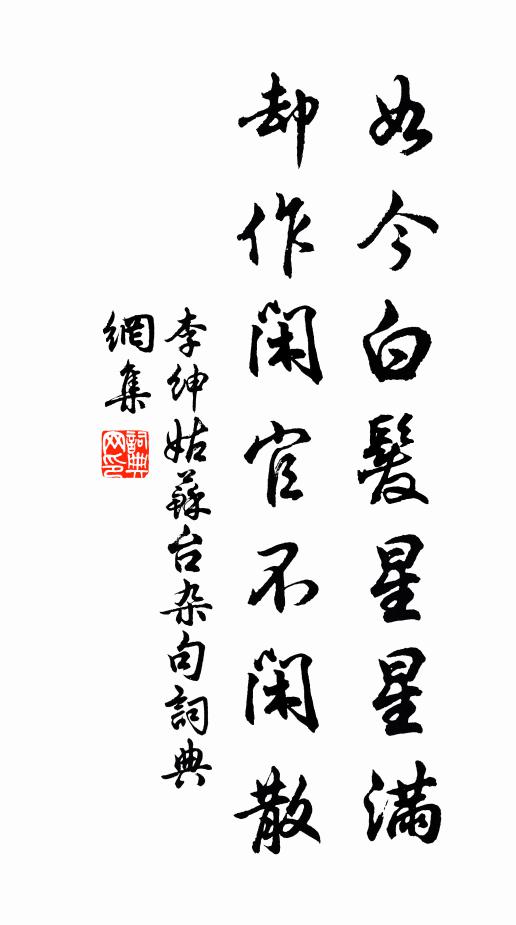 如今白髮星星滿
却作閑官不閑散
李紳姑蘇台杂句詞典
網集
詞典网印